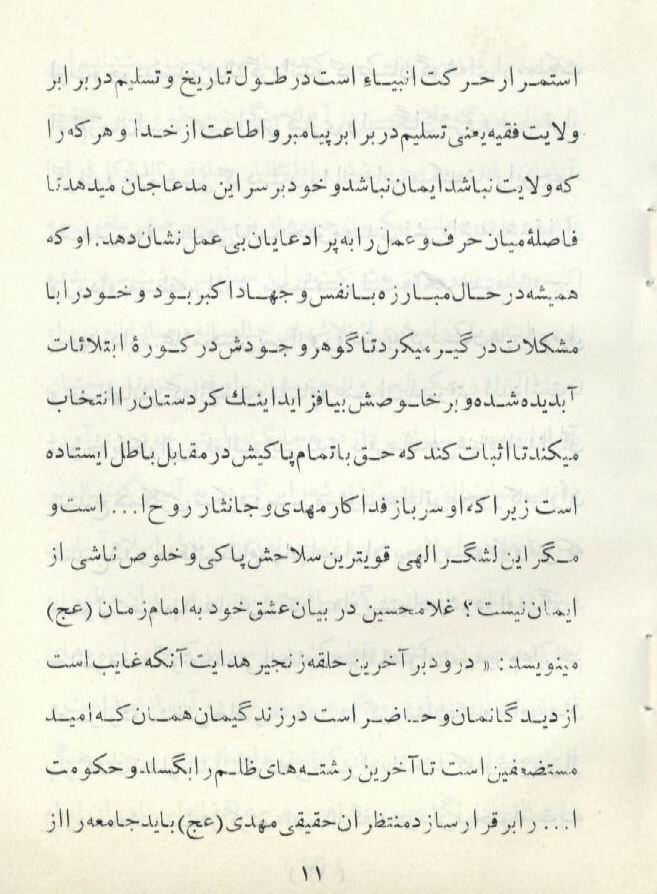 استمرار حرکت انبیاء است در طول تاریخ و تسلیم در برابر
ولایت فقیه یعنی تسلیم در برابر پیامبر و اطاعت از خدا و هر که را
که ولایت نباشد ایمان نباشد و خود بر سر این مدعا جان میدهد تا
فاصلهٔ میان حرف و عمل را به پر ادعایان بی عمل نشان دهد. او که
همیشه در حال مبارزه با نفس و جهاد اکبر بود و خود را با
مشکلات درگیر میکرد تا گوهر وجودش در کورهٔ ابتلائات
آبدیده شده و بر خلوصش بیافزاید اینك کردستان را انتخاب
میکند تا اثبات کند که حق با تمام پاکیش در مقابل باطل ایستاده
است زیرا که او سرباز فداکار مهدی و جانثار روح ا... است و
مگر این لشگر الهی قویترین سلاحش پاکی و خلوص ناشی از
ایمان نیست؟ غلامحسین در بیان عشق خود به امام زمان (عج)
مینویسد: « درود بر آخرین حلقه زنجیر هدایت آنکه غایب است
از دیدگانمان و حاضر است در زندگیمان همان که امید
مستضعفین است تا آخرین رشته های ظلم را بگسلد و حکومت
ا... را برقرار سازد منتظران حقیقی مهدی (عج) باید جامعه را از
۱۱